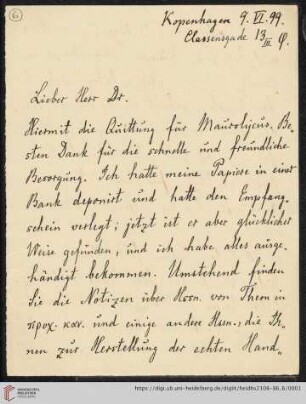 6
Kopenhagen 9. VI. 99.
Classensgade 13 III Ø.
Lieber Herr Dr.
Hiermit die Quittung für Maurolycus. Be-
sten Dank für die schnelle und freundliche
Besorgung. Ich hatte meine Papiere in einer
Bank deponirt und hatte den Empfang-
schein verlegt; jetzt ist er aber glücklicher
Weise gefunden, und ich habe alles ausge-
händigt bekommen. Umstehend finden
Sie die Notizen über Hssn. von Theon in
προχ. καν. und einige andere Hssn., die Ih-
nen zur Herstellung der echten Hand-
https://digi.ub.uni-heidelberg.de/diglit/heidhs2106-86_6/0001